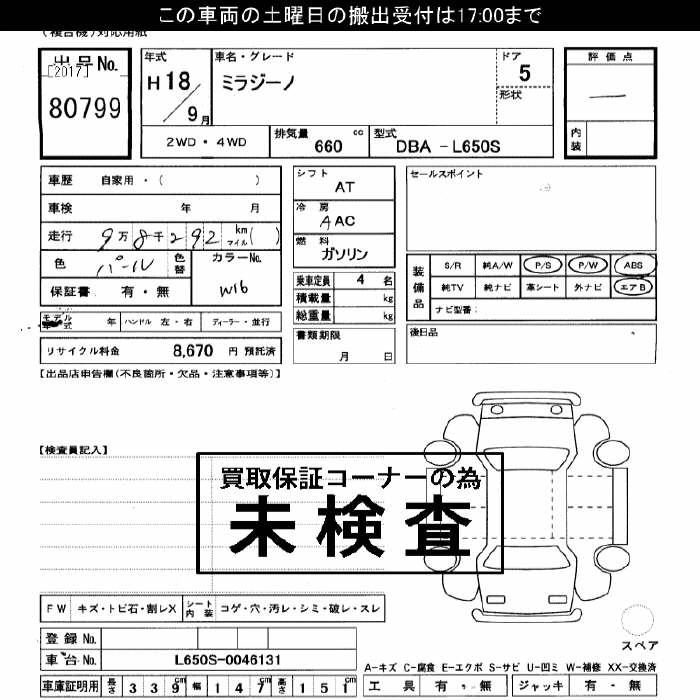 この車両の土曜日の搬出受付は17:00まで
(複合機)対応用紙
出品No.
[2017]
80799
年式
H18/9月
車名・グレード
ミラジーノ
ドア
5
形状
評価点
—
内装
2WD・4WD
排気量 660 cc
型式 DBA - L650S
車歴 自家用・( )
車検 年 月
走行 9万8千292 km マイル( )
色 パール 色替
カラーNo.
W16
保証書 有・無
モデル年式 年 ハンドル 左・右 ディーラー・並行
リサイクル料金 8,670 円 預託済
シフト
AT
冷房
AAC
燃料
ガソリン
乗車定員 4 名
積載量 kg
総重量 kg
書類期限
月 日
セールスポイント
装備品
S/R 純A/W P/S P/W ABS
純TV 純ナビ 革シート 外ナビ エアB
ナビ型番:
後日品
【出品店申告欄(不良箇所・欠品・注意事項等)】
【検査員記入】
買取保証コーナーの為
未検査
FW キズ・トビ石・割レX シート内装 コゲ・穴・汚レ・シミ・破レ・スレ
登録No.
車台No. L650S-0046131
スペア
A-キズ C-腐食 E-エクボ S-サビ U-凹ミ W-補修 XX-交換済
車庫証明用 長さ 339cm 幅 147cm 高さ 151cm
工具 有・無 ジャッキ 有・無